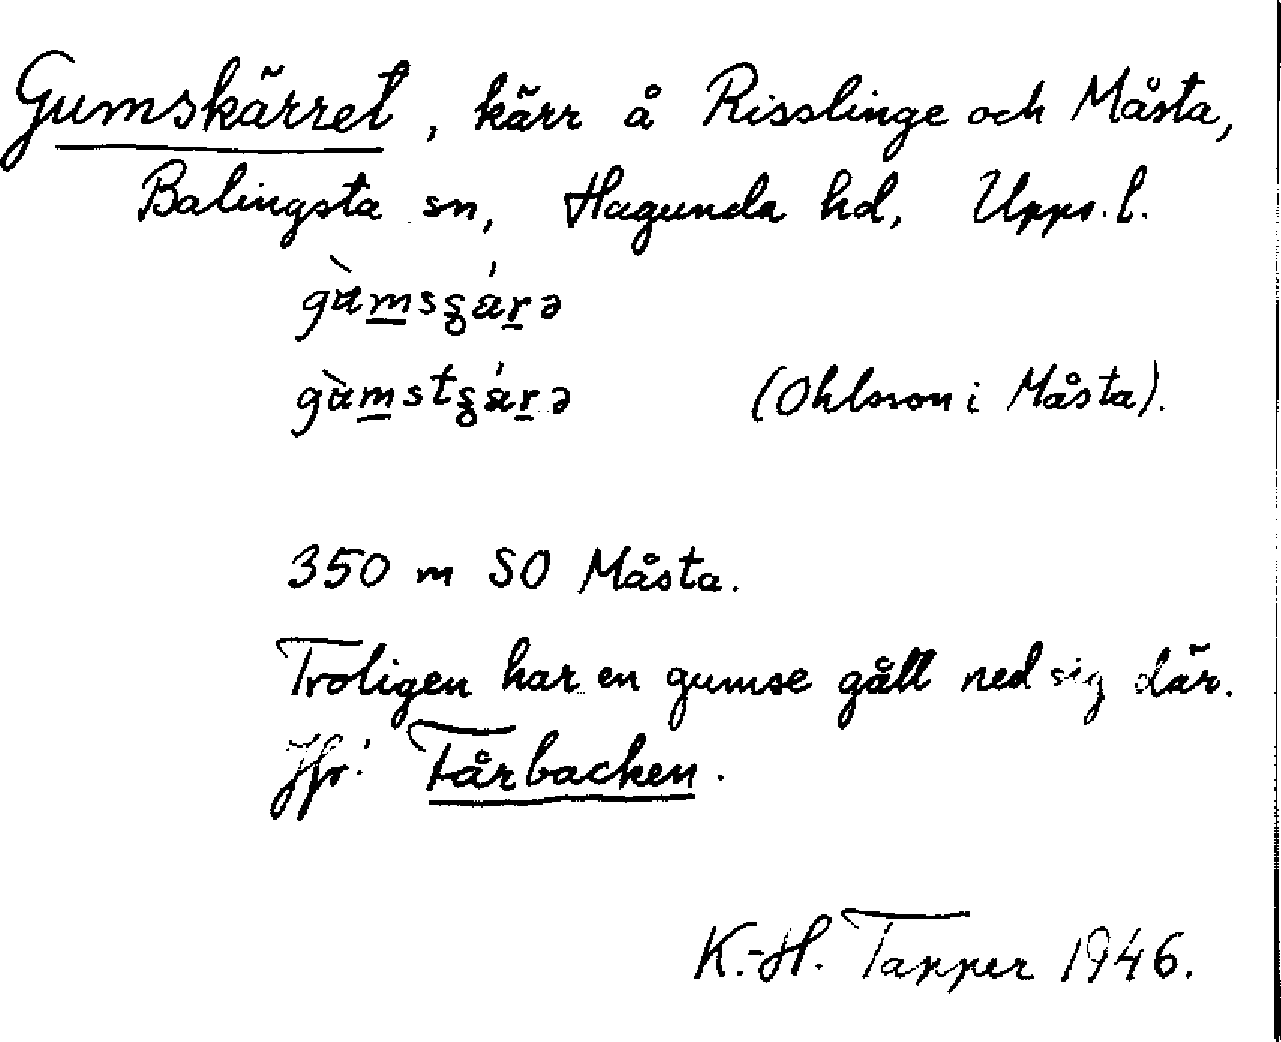 Gumskärret, kärr å Risslinge och Måsta,
Balingsta sn, Hagunda hd, Upps. l.
(Ohlsson i Måsta).
350 m SO Måsta.
Troligen har en gumse gått ned sig där.
Jfr: Fårbacken.
K.-H. Tapper 1946.